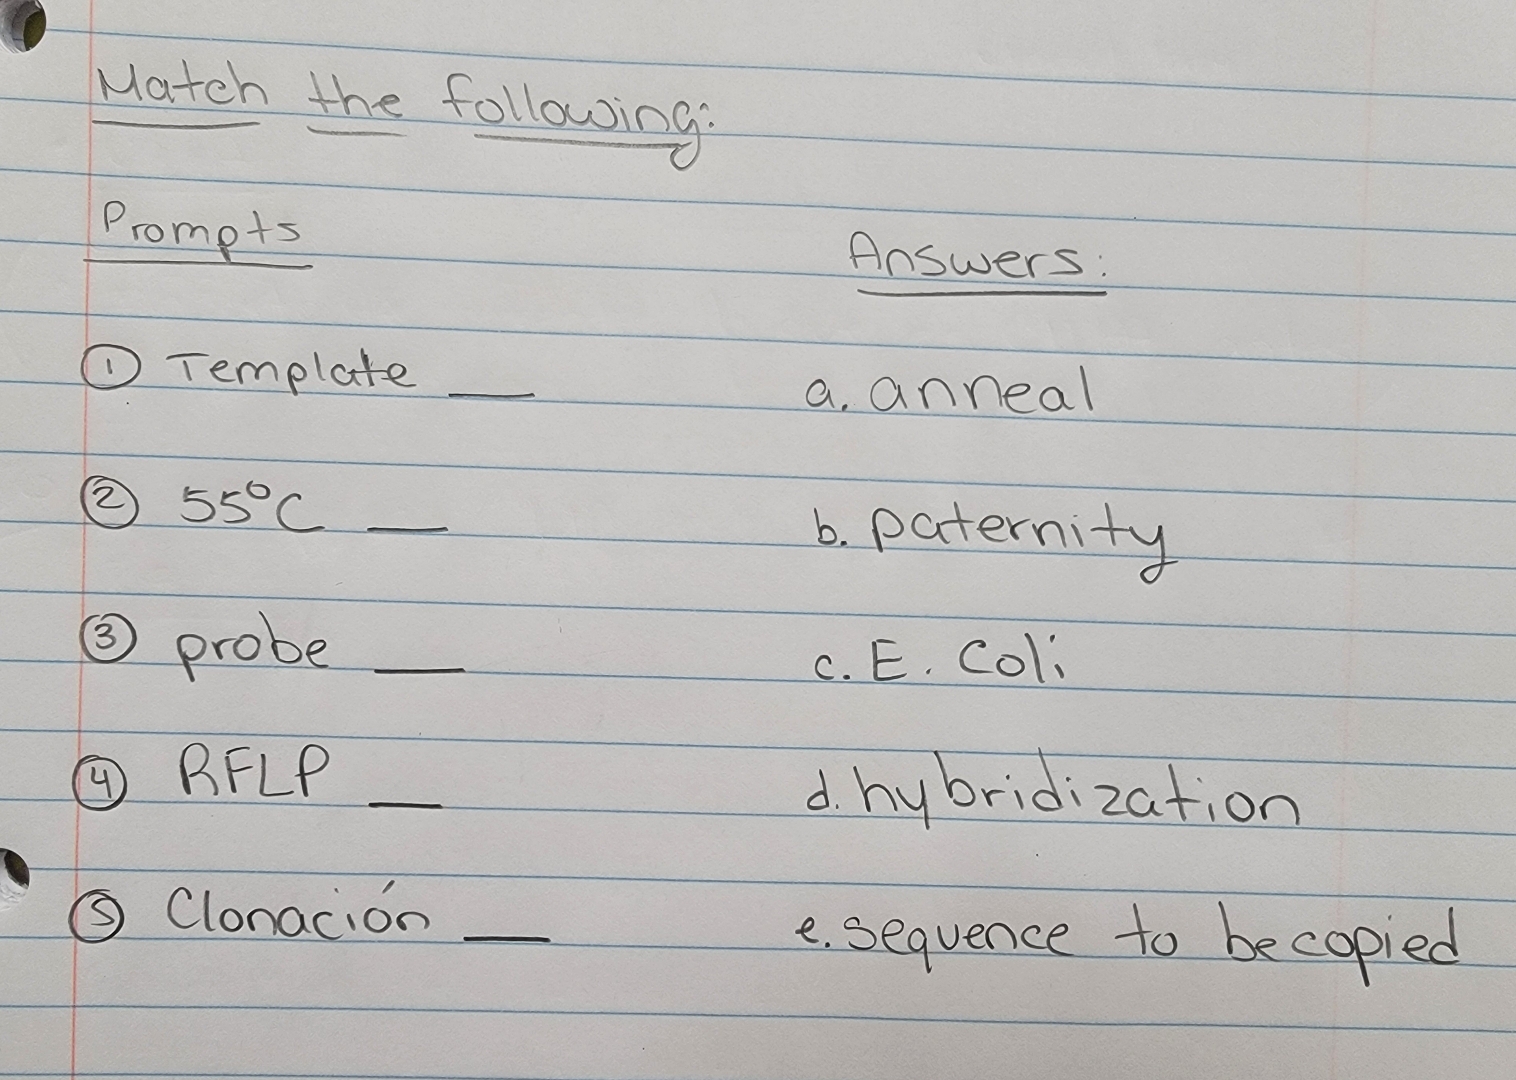 Match the following:
Prompts
Answers:
① Template ___
a. anneal
② 55°C ___
b. paternity
③ probe ___
c. E. Coli
④ RFLP ___
d. hybridization
⑤ Clonación ___
e. sequence to be copied